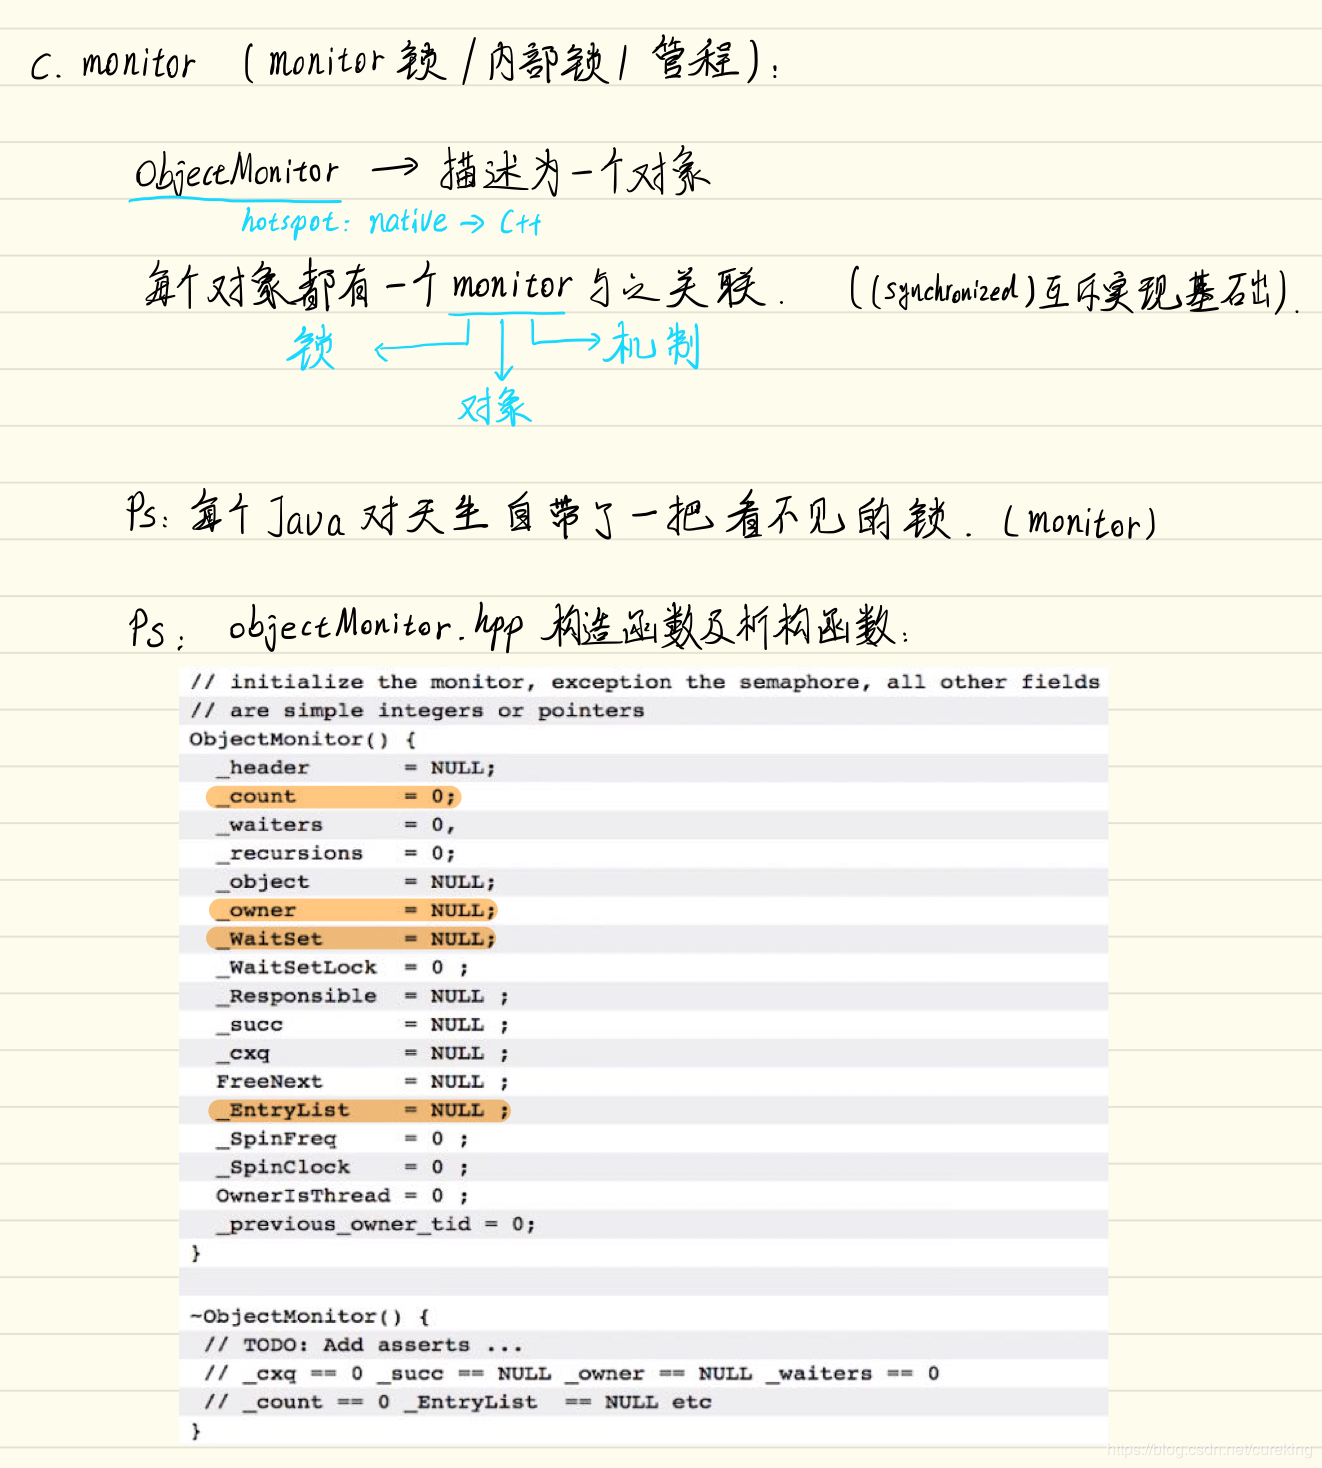 c. monitor （monitor 锁 / 内部锁 / 管程）：
ObjectMonitor → 描述为一个对象
hotspot: native → C++
每个对象都有一个 monitor 与之关联. （(synchronized) 互斥实现基础）.
锁 ← → 机制
对象
Ps: 每个 Java 对天生自带了一把看不见的锁. (monitor)
Ps: objectMonitor.hpp 构造函数及析构函数:
// initialize the monitor, exception the semaphore, all other fields
// are simple integers or pointers
ObjectMonitor() {
_header = NULL;
_count = 0;
_waiters = 0,
_recursions = 0;
_object = NULL;
_owner = NULL;
_WaitSet = NULL;
_WaitSetLock = 0 ;
_Responsible = NULL ;
_succ = NULL ;
_cxq = NULL ;
FreeNext = NULL ;
_EntryList = NULL ;
_SpinFreq = 0 ;
_SpinClock = 0 ;
OwnerIsThread = 0 ;
_previous_owner_tid = 0;
}
~ObjectMonitor() {
// TODO: Add asserts ...
// _cxq == 0 _succ == NULL _owner == NULL _waiters == 0
// _count == 0 _EntryList == NULL etc
}
https://blog.csdn.net/cureking